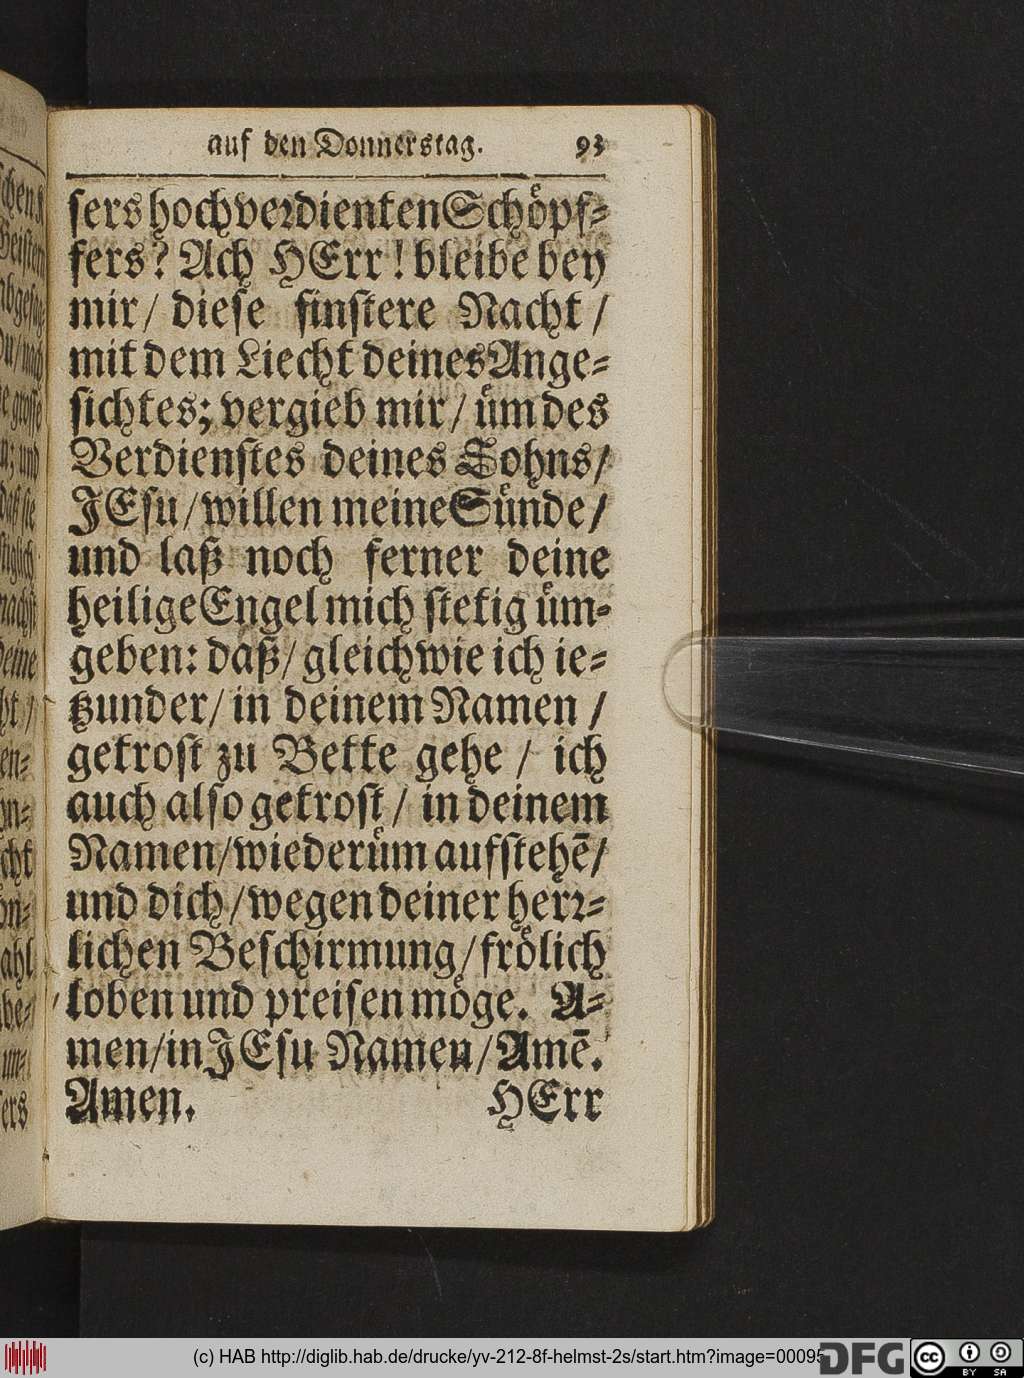 auf den Donnerstag. 93
sers hochverdienten Schöpf-
fers? Ach HErr! bleibe bey
mir/ diese finstere Nacht/
mit dem Liecht deines Ange-
sichtes; vergieb mir/ üm des
Verdienstes deines Sohns/
JEsu/ willen meine Sünde/
und laß noch ferner deine
heilige Engel mich stetig üm-
geben: daß/ gleichwie ich ie-
tzunder/ in deinem Namen/
getrost zu Bette gehe/ ich
auch also getrost/ in deinem
Namen/ wiederüm aufstehē/
und dich/ wegen deiner herr-
lichen Beschirmung/ frölich
loben und preisen möge. A-
men/ in JEsu Namen/ Amē.
Amen. HErr
(c) HAB http://diglib.hab.de/drucke/yv-212-8f-helmst-2s/start.htm?image=00095
DFG
cc BY SA